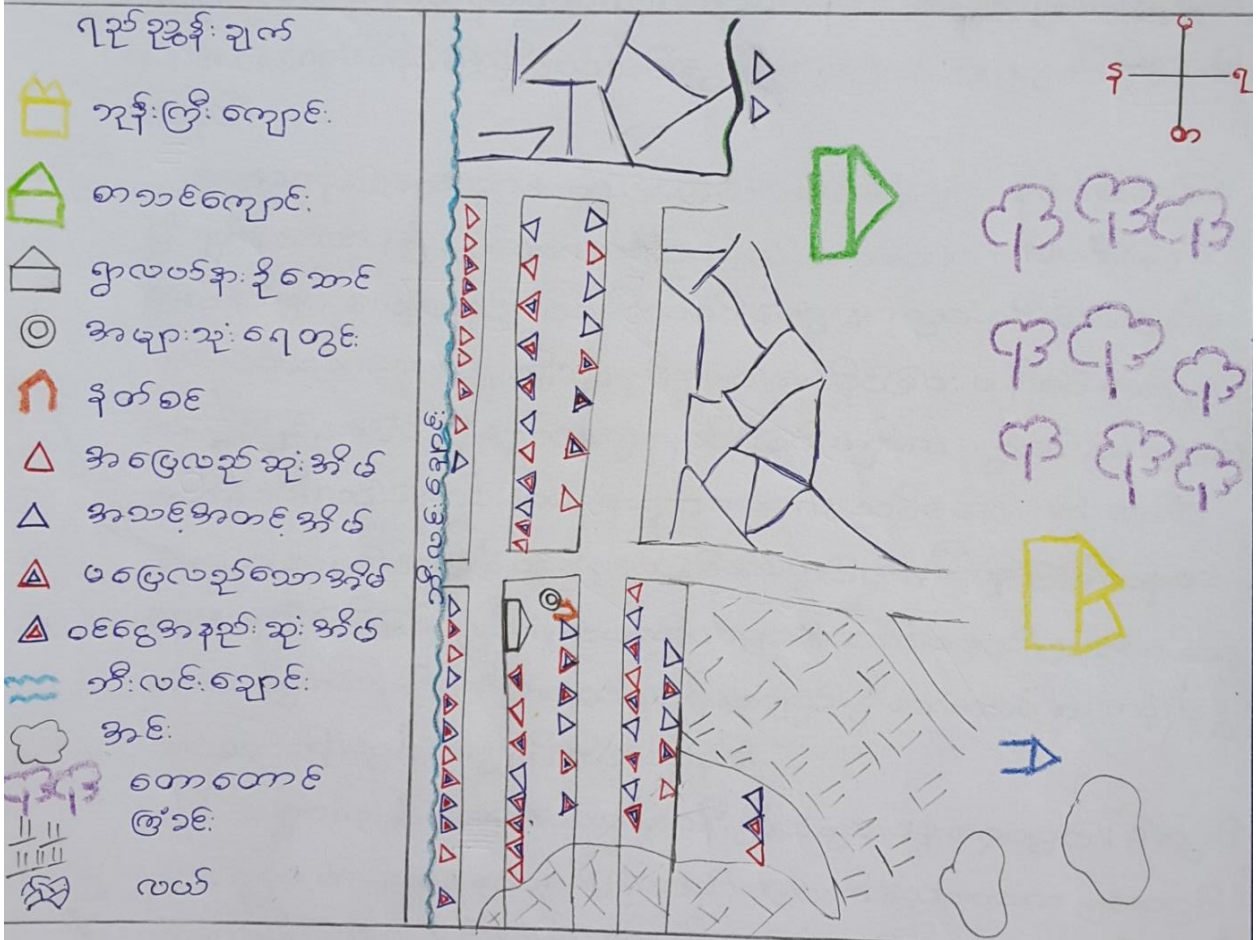 ရည်ညွှန်းချက်
ဘုန်းကြီးကျောင်း
စာသင်ကျောင်း
ရွာလယ်နားခိုဆောင်
အများသုံးရေတွင်း
နတ်စင်
အပြေလည်ဆုံးအိမ်
အသင့်အတင့်အိမ်
မပြေလည်သောအိမ်
ဝင်ငွေအနည်းဆုံးအိမ်
ဘီးလင်းချောင်း
အင်း
တောတောင်
ကြံခင်း
လယ်
မ
န
ရ
တ